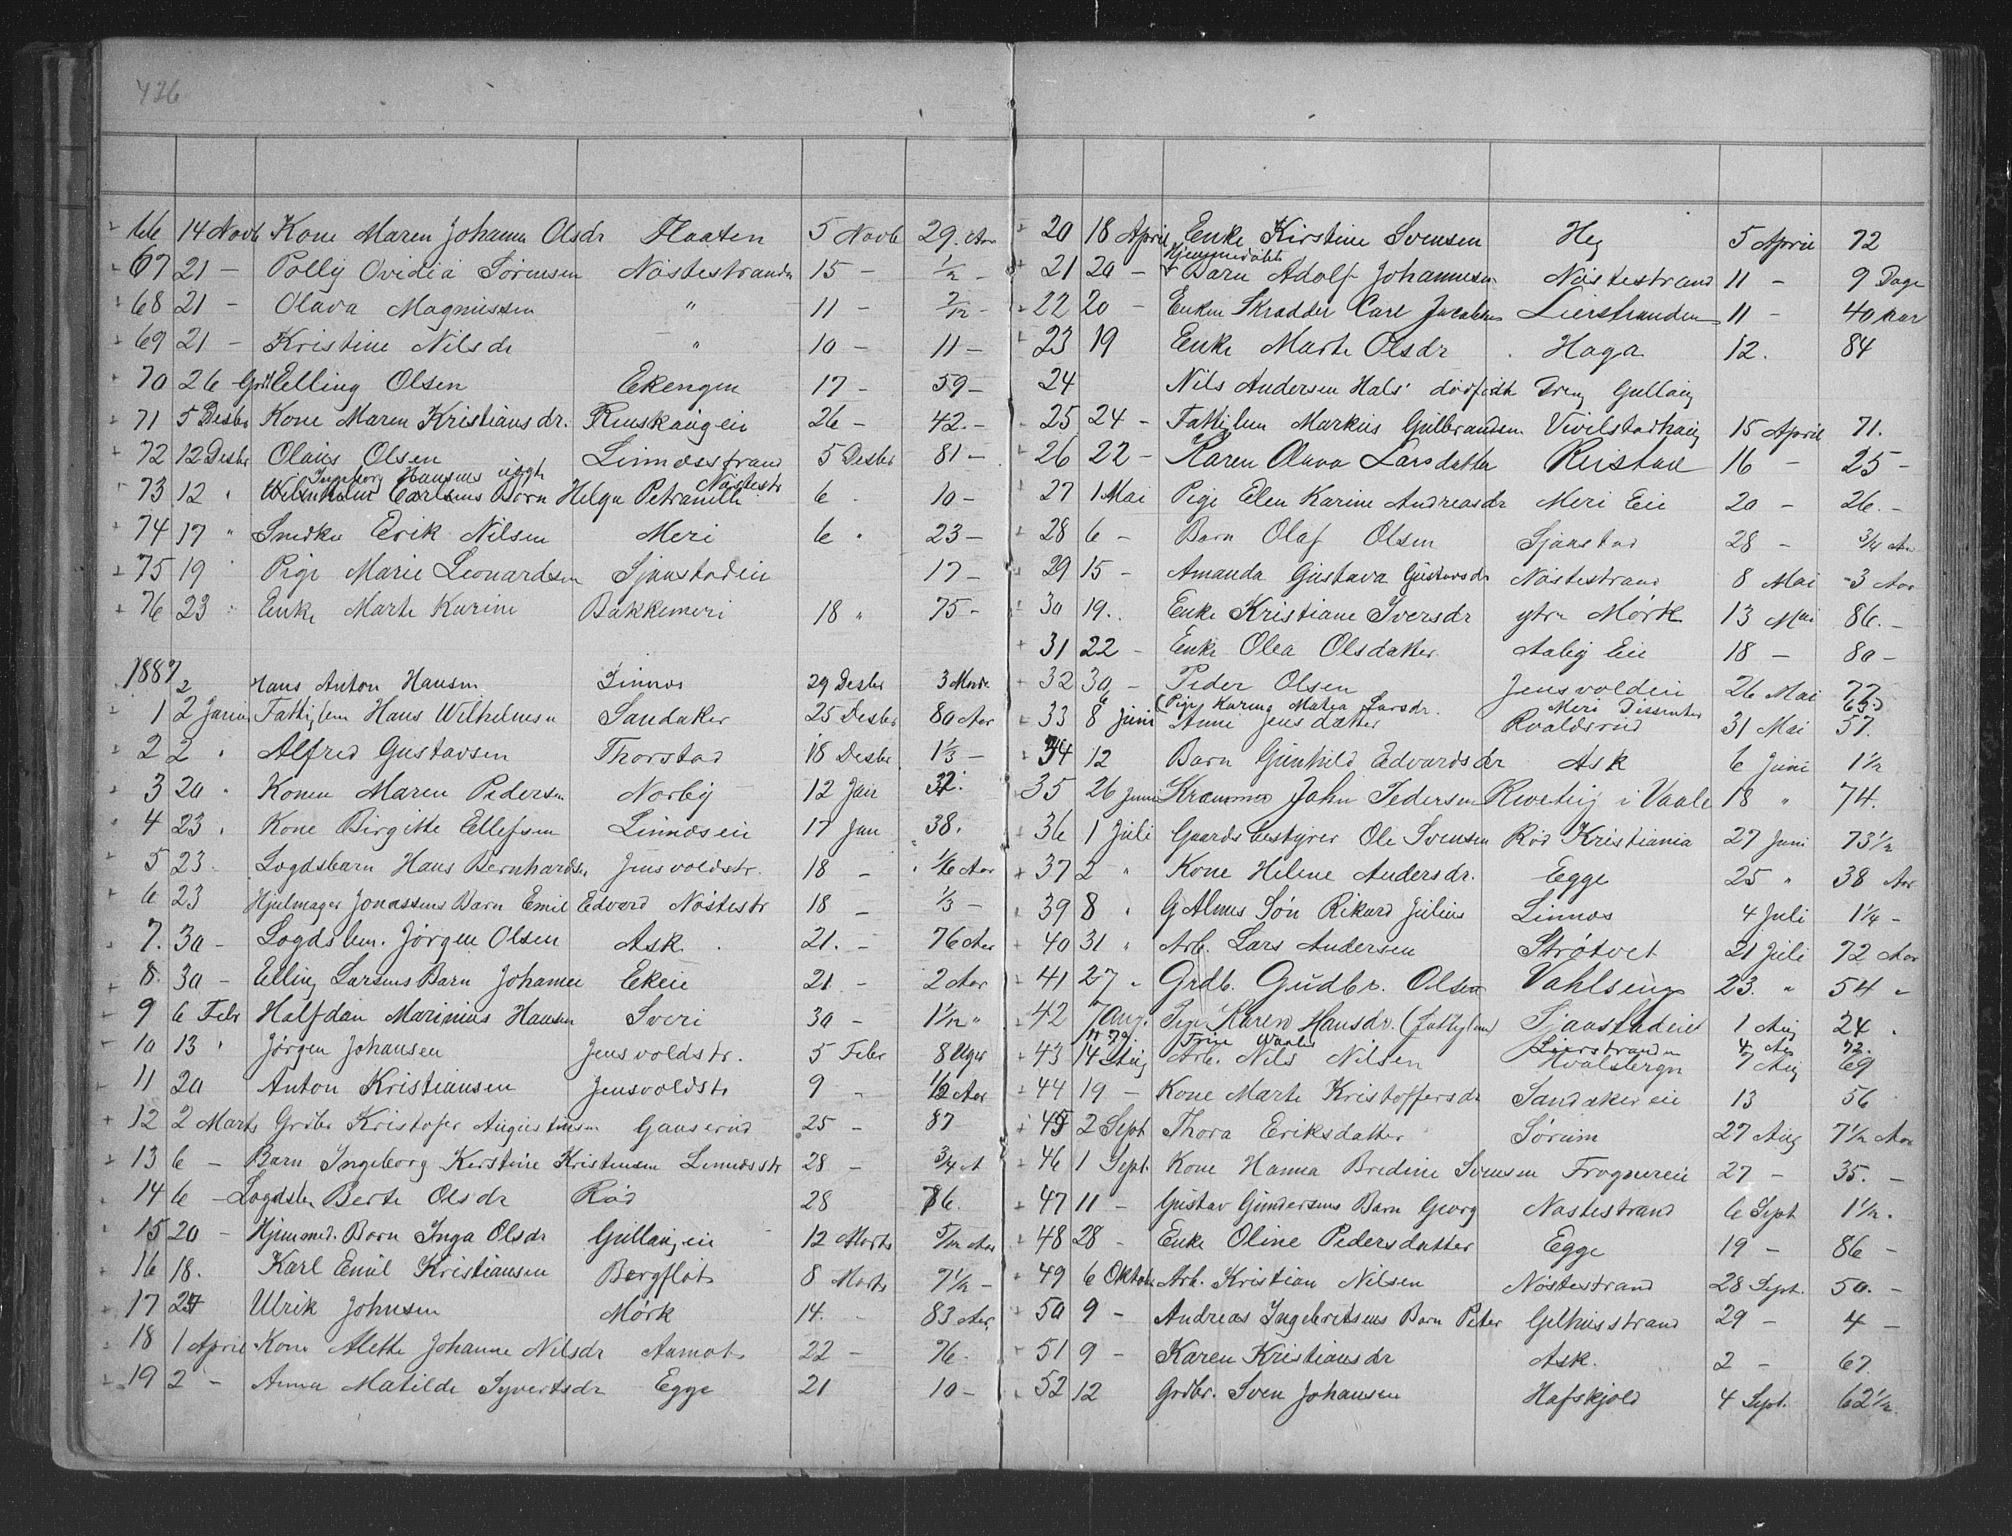 436
66 14 Novb Kone Maren Johanne Olsdr Flaaten 5 Novb 29. Aar
67 21 - Polly Ovidia Sørensen Nöstestranden 15 - ½ -
68 21 - Olava Magnussen " 11 - 7/12 -
69 21 - Kristine Nilsdr " 10 - 11 -
70 26 - Grdb Elling Olsen Ekengen 17 - 59 -
71 5 Desbr Kone Maren Kristiansdr. 26 - 42. -
72 12 Desbr Olaus Olsen Linnesstrand 5 Desbr 81 -
Ingeborg Hansens uægte Nöstestr
73 12 " Carlsens Barn Helga Petranille 6 . 10 -
74 17 " Smdke Erik Nilsen Meri 6 " 23 -
75 19 " Pige Marie Leonardsen Sjaastadeie 17 -
76 23 " Enke Marte Karine Bakkemeri 18 " 75 -
1887
2 Hans Anton Hansen Linnes 29 Desbr 3 Mndr.
1 2 Januar Fattiglem Hans Wilhelmsen Sandaker 25 Desbr 80 Aar
2 2 " Alfred Gustavsen Thorstad 18 Desbr 1⅓ -
3 20 " Konen Maren Pedersen Norby 12 Jan 32.
4 23 " Kone Birgitte Ellefsen Linneseie 17 Jan 38.
5 23 - Logdsbarn Hans Bernhardsen Jensvoldstr. 18 - 1/6 Aar
6 23 Hjulmager Jonassens Barn Emil Edvard Nöstestr 18 - ⅓ -
7. 30 - Logdslem. Jørgen Olsen Ask. 21. - 76 Aar
8. 30 - Elling Larsens Barn Johanne Ekeie 21 - 2 Aar
9 6 Febr Halfdan Marinius Hansen Sveri 30 - 1 1/12 "
10 13 " Jørgen Johansen Jensvoldstr. 5 Febr 8 Uger
11 20 Anton Kristiansen Jensvoldstr 9 - ½ Aar
12 2 Marts Grdbr Kristofer Augustinsen Gauserud 25 - 87
13 6 - Barn Ingeborg Kirstine Kristensen Linnesstr 28 - ¾ A
14 6 - Logdslem Berte Olsdr Röd 28 76.
15 20 - Hjemmed. Barn Inga Olsdr Gullaugeie 12 Marts 5/12 Aar
16 18. Karl Emil Kristiansen Bergflot 8 Marts 7½ -
17 27 Ulrik Johnsen Mörk 14. - 83 Aar.
18 1 April Kone Alette Johanne Nilsdr Aamot 22 - 76.
19 2 - Anna Matilde Syvertsdr Egge 21 10 -
20 18 April Enke Kirstine Svensen Heg 5 April 72
Hjemmedöbt
21 20 - Barn Adolf Johannesen Nöstestrand 11 - 9 Dage
22 20 - Enkem Skrædder Carl Jacobsen Lierstranden 11 - 40 Aar
23 19 Enke Marte Olsdr Haga 12. 84
24 Nils Andersen Hals' dødfødte Dreng Gullaug
25 24 - Fattiglem Markus Gulbrandsen Vivelstadhaug 15 April 71.
26 22 - Karen Olava Larsdatter Reistad 16 - 25 -
27 1 Mai Pige Elen Karine Andreasdr Meri Eie 20 - 26. -
28 6 - Barn Olaf Olsen Sjaastad 28 - ¾ Aar
29 15 - Amanda Gustava Gustavsdr Nöstestrand 8 Mai 3 Aar
30 19. Enke Kristiane Iversdr ytre Mörk 13 Mai 86. -
31 22 - Enke Olea Olsdatter Aaby Eie 18 - 80 -
32 30 - Peder Olsen Jensvoldeie 26 Mai 77.
(Pige Karine Matea Larsdr. Meri Dissenter 63)
33 8 Juni Anne Jensdatter Kvaldsrud 31 Mai 57.
34 12 Barn Gunhild Edvardsdr Ask 6 Juni 1½
35 26 Juni John Pedersen i Vaale 18 " 74.
36 1 Juli Gaardsbestyrer Ole Svensen Röd Kristiania 27 Juni 73½
37 2 " Kone Helene Andersdr. Egge 25 " 38 Aar
39 8 " G Alms Sön Rikard Julius Linnes 4 Juli 1¼ -
40 31 " Arb. Lars Andersen Strötvet 21 Juli 72 Aar
41 27 " Grdb. Gudbr. Olsen Vahlseng 23. " 54 "
42 7 Aug. Pige Karen Hansdr. (Fattiglem) Sjaastadeie 1 Aug 24 "
Lierstranden 4 Aug 72.
43 14 Aug Arb. Nils Nilsen Kvalsbergn 7 Aug 69
44 19 - Kone Marte Kristoffersdr Sandakereie 13 56
45 2 Sept Thora Eriksdatter Sørum 27 Aug 7½ Aar
46 1 Sept. Kone Hanna Bredine Svensen Frognereie 27 - 35. -
47 11 - Gustav Gundersens Barn Georg Nöstestrand 6 Sept 1½.
48 28 - Enke Oline Pedersdatter Egge 19 - 86 -
49 6 Oktobr Arb. Kristian Nilsen Nöstestrand 28 Sept. 50. -
50 9 - Andreas Ingebritsens Barn Peter Gilhusstrand 29 - 4 -
51 9 - Karen Kristiansdr Ask. 2 - 67.
52 12 Grdbr. Sven Johansen Hafskjold 4 Sept. 62½